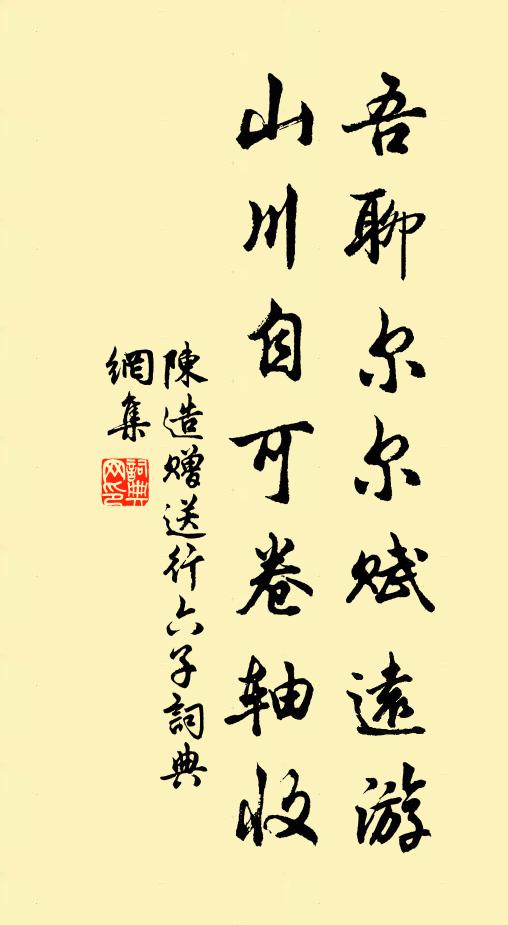 吾聊尔尔赋遠游
山川自可卷轴收
陳造赠送行六子詞典
網集
詞典网印